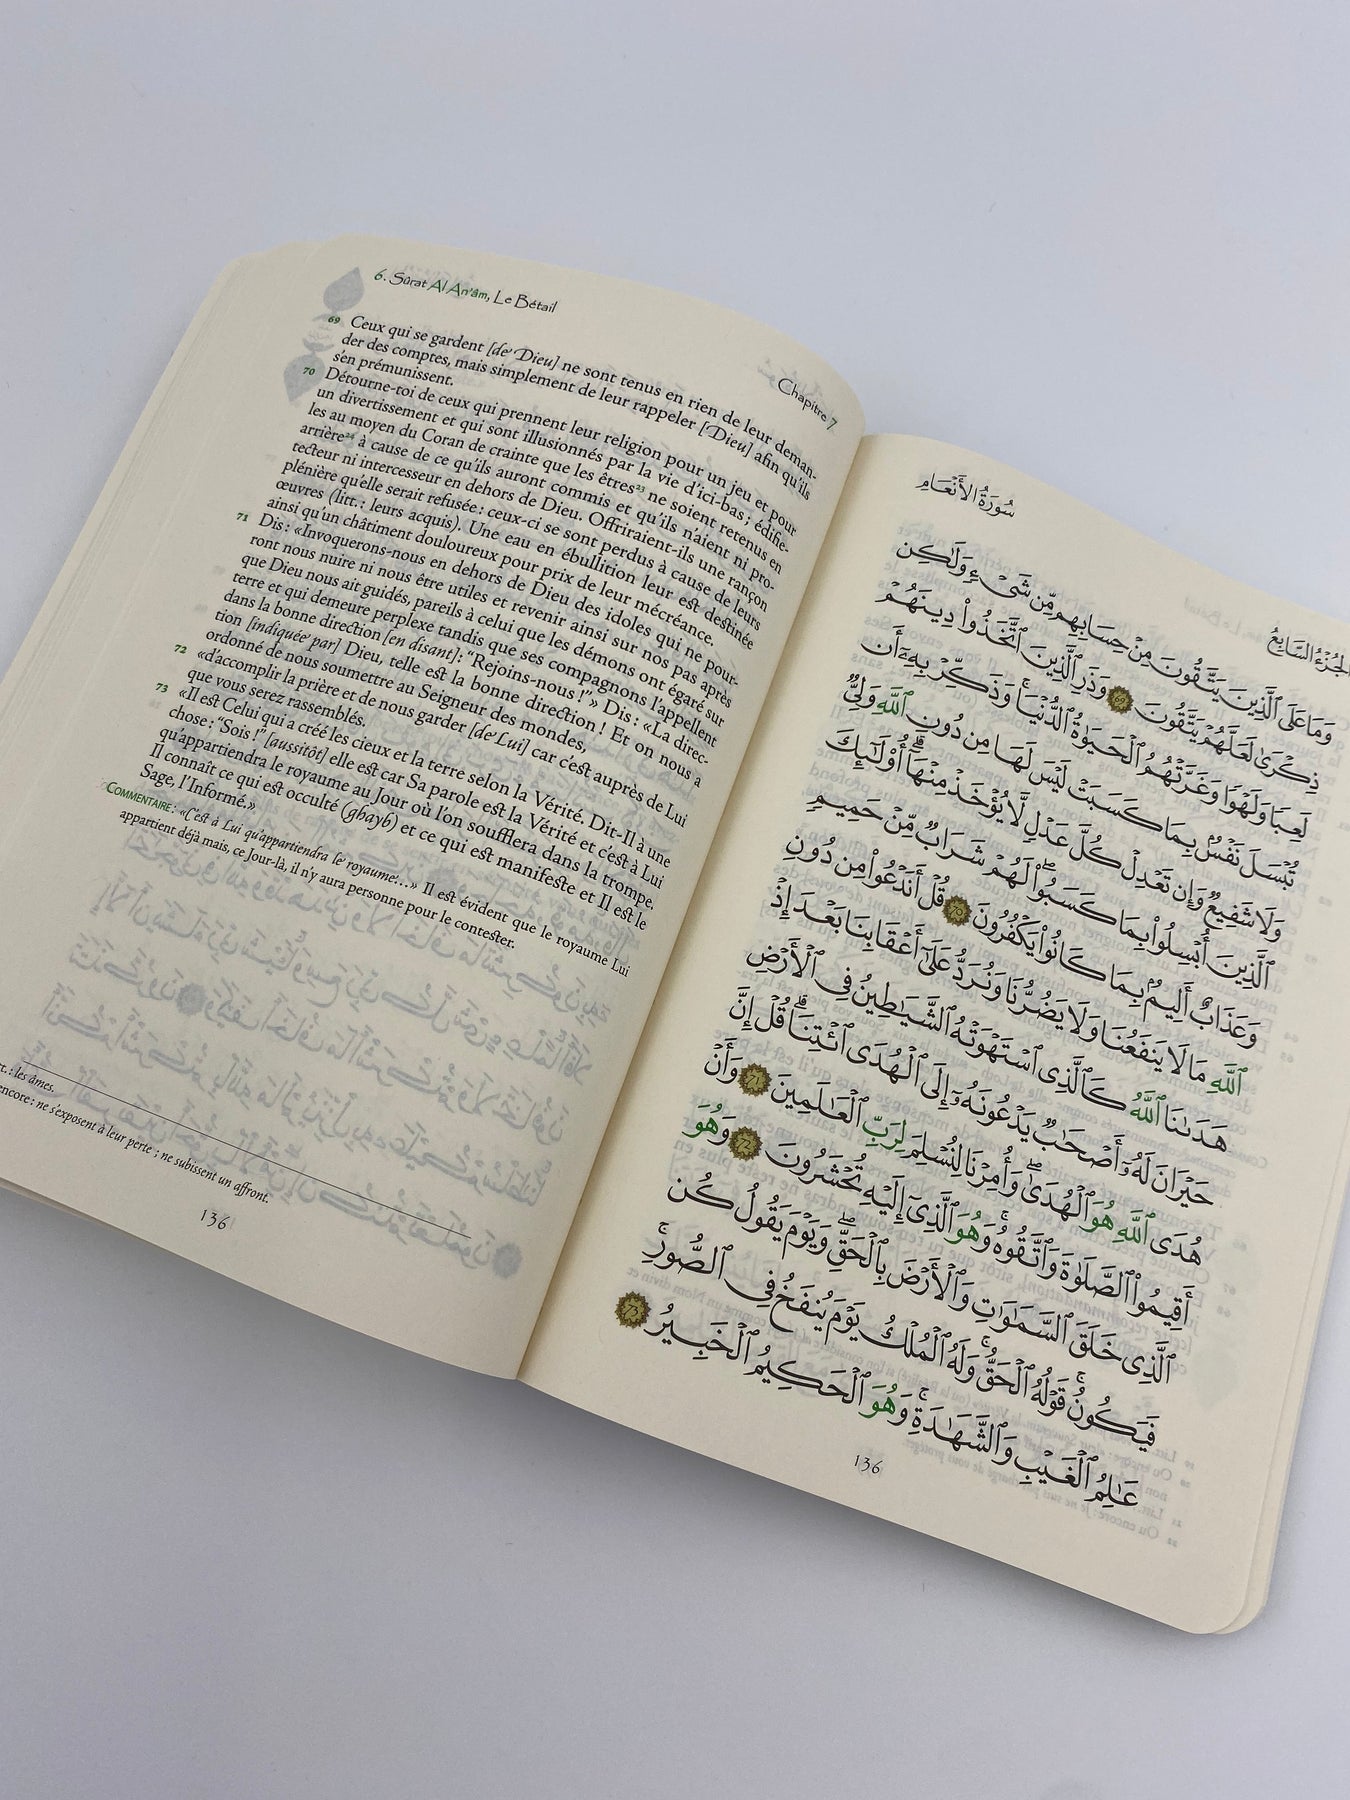 6. Sûrat Al An'âm, Le Bétail
Chapitre 7
69 Ceux qui se gardent [de Dieu] ne sont tenus en rien de leur deman-
der des comptes, mais simplement de leur rappeler [Dieu] afin qu'ils
s'en prémunissent.
70 Détourne-toi de ceux qui prennent leur religion pour un jeu et pour
un divertissement et qui sont illusionnés par la vie d'ici-bas ; édifie-
les au moyen du Coran de crainte que les êtres23 ne soient retenus en
arrière24 à cause de ce qu'ils auront commis et qu'ils n'aient ni pro-
tecteur ni intercesseur en dehors de Dieu. Offriraient-ils une rançon
plénière qu'elle serait refusée : ceux-ci se sont perdus à cause de leurs
œuvres (litt. : leurs acquis). Une eau en ébullition leur est destinée
ainsi qu'un châtiment douloureux pour prix de leur mécréance.
71 Dis : «Invoquerons-nous en dehors de Dieu des idoles qui ne pour-
ront nous nuire ni nous être utiles et revenir ainsi sur nos pas après
que Dieu nous ait guidés, pareils à celui que les démons ont égaré sur
terre et qui demeure perplexe tandis que ses compagnons l'appellent
dans la bonne direction [en disant] : “Rejoins-nous !”» Dis : «La direc-
tion [indiquée par] Dieu, telle est la bonne direction ! Et on nous a
ordonné de nous soumettre au Seigneur des mondes,
72 «d'accomplir la prière et de nous garder [de Lui] car c'est auprès de Lui
que vous serez rassemblés.
73 «Il est Celui qui a créé les cieux et la terre selon la Vérité. Dit-Il à une
chose : “Sois !” [aussitôt] elle est car Sa parole est la Vérité et c'est à Lui
qu'appartiendra le royaume au Jour où l'on soufflera dans la trompe.
Il connaît ce qui est occulté (ghayb) et ce qui est manifeste et Il est le
Sage, l'Informé.»
COMMENTAIRE : «C'est à Lui qu'appartiendra le royaume…» Il est évident que le royaume Lui
appartient déjà mais, ce Jour-là, il n'y aura personne pour le contester.
tt. : les âmes.
encore : ne s'exposent à leur perte ; ne subissent un affront.
136
سُورَةُ الأَنْعَامِ
الجُزْءُ السَّابِعُ
وَمَا عَلَى ٱلَّذِينَ يَتَّقُونَ مِنْ حِسَابِهِم مِّن شَىْءٍ وَلَٰكِن
ذِكْرَىٰ لَعَلَّهُمْ يَتَّقُونَ ٦٩ وَذَرِ ٱلَّذِينَ ٱتَّخَذُوا۟ دِينَهُمْ
لَعِبًا وَلَهْوًا وَغَرَّتْهُمُ ٱلْحَيَوٰةُ ٱلدُّنْيَا ۚ وَذَكِّرْ بِهِۦٓ أَن
تُبْسَلَ نَفْسٌۢ بِمَا كَسَبَتْ لَيْسَ لَهَا مِن دُونِ ٱللَّهِ وَلِىٌّ
وَلَا شَفِيعٌ وَإِن تَعْدِلْ كُلَّ عَدْلٍ لَّا يُؤْخَذْ مِنْهَآ ۗ أُو۟لَٰٓئِكَ
ٱلَّذِينَ أُبْسِلُوا۟ بِمَا كَسَبُوا۟ ۖ لَهُمْ شَرَابٌ مِّنْ حَمِيمٍ
وَعَذَابٌ أَلِيمٌۢ بِمَا كَانُوا۟ يَكْفُرُونَ ٧٠ قُلْ أَنَدْعُوا۟ مِن دُونِ
ٱللَّهِ مَا لَا يَنفَعُنَا وَلَا يَضُرُّنَا وَنُرَدُّ عَلَىٰٓ أَعْقَابِنَا بَعْدَ إِذْ
هَدَىٰنَا ٱللَّهُ كَٱلَّذِى ٱسْتَهْوَتْهُ ٱلشَّيَٰطِينُ فِى ٱلْأَرْضِ
حَيْرَانَ لَهُۥٓ أَصْحَٰبٌ يَدْعُونَهُۥٓ إِلَى ٱلْهُدَى ٱئْتِنَا ۗ قُلْ إِنَّ
هُدَى ٱللَّهِ هُوَ ٱلْهُدَىٰ ۖ وَأُمِرْنَا لِنُسْلِمَ لِرَبِّ ٱلْعَٰلَمِينَ ٧١ وَأَنْ
أَقِيمُوا۟ ٱلصَّلَوٰةَ وَٱتَّقُوهُ ۚ وَهُوَ ٱلَّذِىٓ إِلَيْهِ تُحْشَرُونَ ٧٢ وَهُوَ
ٱلَّذِى خَلَقَ ٱلسَّمَٰوَٰتِ وَٱلْأَرْضَ بِٱلْحَقِّ ۖ وَيَوْمَ يَقُولُ كُن
فَيَكُونُ ۚ قَوْلُهُ ٱلْحَقُّ ۚ وَلَهُ ٱلْمُلْكُ يَوْمَ يُنفَخُ فِى ٱلصُّورِ ۚ
عَٰلِمُ ٱلْغَيْبِ وَٱلشَّهَٰدَةِ ۚ وَهُوَ ٱلْحَكِيمُ ٱلْخَبِيرُ ٧٣
136